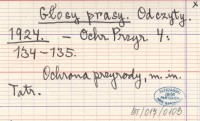 x
Głosy prasy. Odczyty.
1924. — Ochr. Przyr. 4:
134-135.
Ochrona przyrody, m. in.
Tatr.